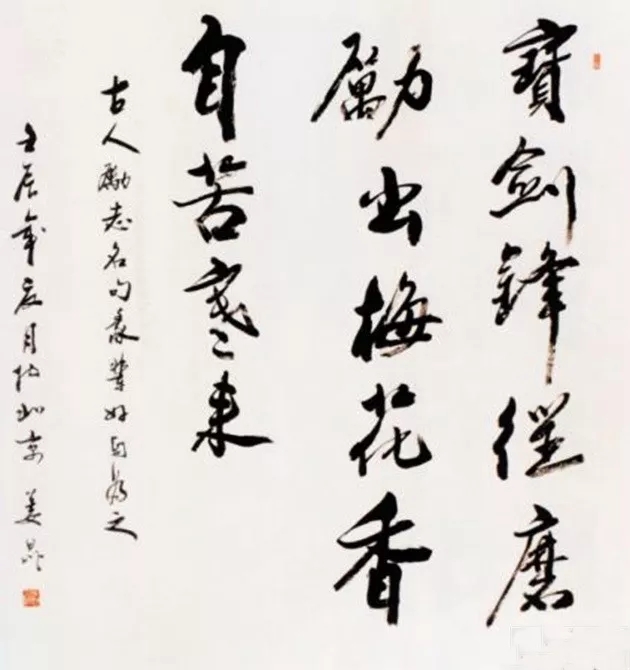 寶劍鋒從磨
勵出梅花香
自苦寒來
古人勵志名句我輩好自為之
壬辰年月於北京 姜昆